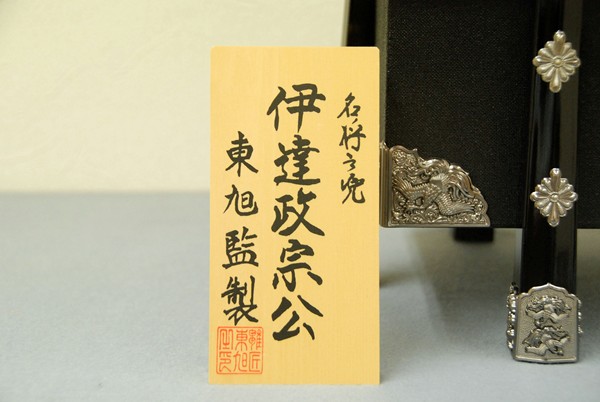 名将之兜
伊達政宗公
東旭監製
雛匠
東旭
之印